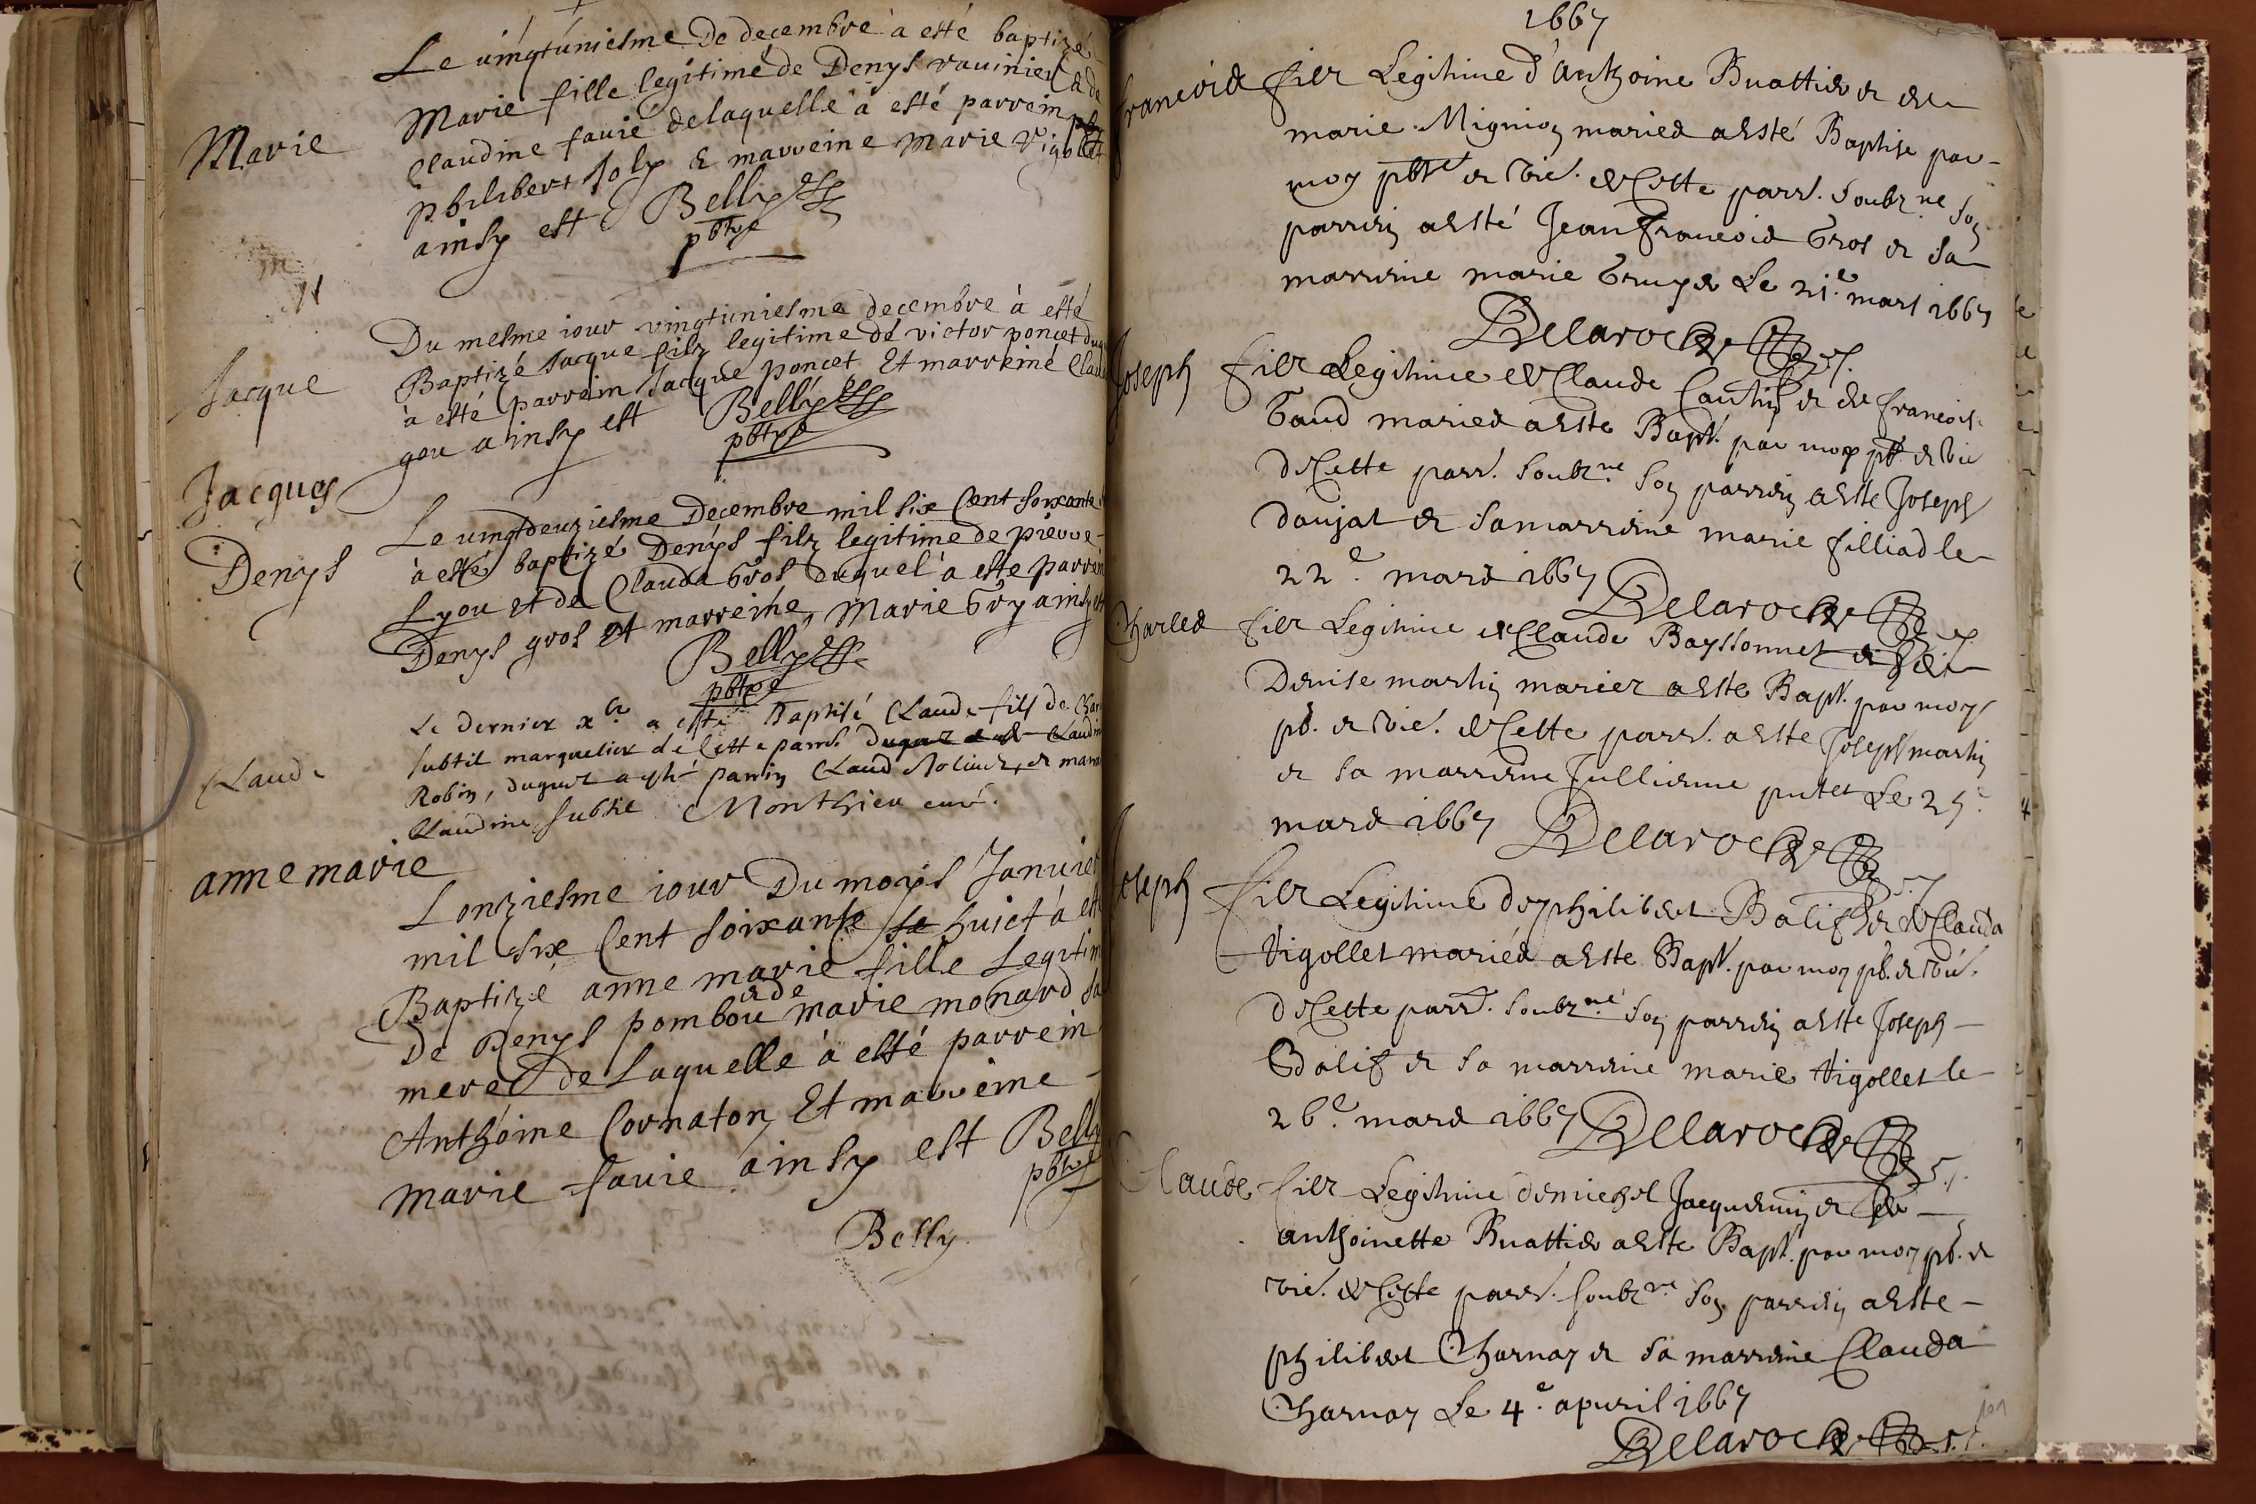 Le vingtuniesme De decembre a esté baptizé
Marie fille legitime de Denys ravinier & de
Marie
Claudine favie de laquelle a esté parrein
philibert Joly & marreine Marie Vigollet
ainsy est Belly
pbtre
Du mesme iour vingtuniesme decembre à esté
Baptizé Jacque filz legitime de victor poncet
Jacque
à esté parrein Jacque poncet Et marreine
gou ainsy est Belly
pbtre
Jacques
Le vingtdeuziesme Decembre mil six Cent soixante
à esté baptizé Denys filz legitime de pierre
Denys
Lyon et de Clauda Gros duquel à este parrein
Denys gros et marreine, Marie Gry ainsy est
Belly
pbtre
Le dernier xbr a esté Baptisé Claude fils de
subtil marguelier de Cette parr.
Claude
Robin, duquel a esté parrin Claud et
Claudine subtil Monthieu curé.
anne marie
Lonziesme iour Du moys Janvier
mil six Cent soixante huict à esté
Baptizé anne marie fille Legitime
De Denys pombou et de marie monard sa
mere De Laquelle à esté parrein
Anthoine Cornaton Et marreine
marie favie ainsy est Belly
pbtre
Belly
1667
Francois filz Legitime d'Anthoine Buattier et de
marie Mignion maries a esté Baptise par
moy pbre et vic. de Cette parr. soubz.ne son
parrein a esté Jean francois Gros et sa
marreine marie Le 21.e mars 1667
Delaroche
Joseph filz Legitime de Claude et de francoise
Gaud maries a este Bapt. par moy pb. et vic
de Cette parr. soubz.ne son parrein a este Joseph
Doujat et sa marreine marie filliad le
22.e mars 1667 Delaroche
Charles filz Legitime de Claude Bayssonnet et de
Denise martin mariez a este Bapt. par moy
pb. et vic. de Cette parr. a este Joseph martin
et sa marreine Jullienne putet Le 25.e
mars 1667 Delaroche
Joseph filz Legitime de philibert Balif et de Clauda
Vigollet maries a este Bapt. par moy pb. et vic.
de Cette parr. soubz.ne son parrein a este Joseph
Balif et sa marreine marie Vigollet le
26.e mars 1667 Delaroche
Claude filz Legitime de michel Jacquemin et de
anthoinette Buattier a este Bapt. par moy pb. et
vic. de Cette parr. soubz.ne son parrein a este
philibert Charnay et sa marreine Clauda
Charnay Le 4.e apuril 1667
Delaroche